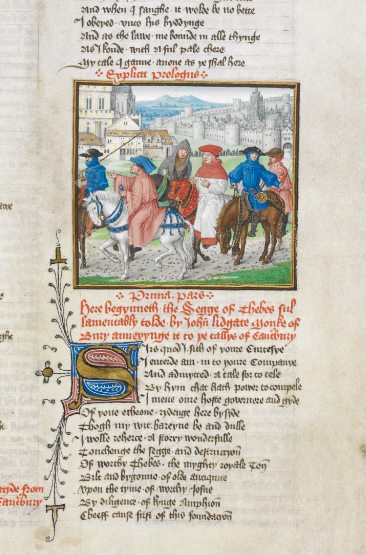 And when I sanghe it wolde be no bette
I obeyed vnto his byddynge
And as the lawe me bonide in alle thynge
As I koude with a ful pale chere
My tale I ganne anone as ye shal here
Explicit Prologus
Prima Pars
Here begynneth the Segge of Thebes ful
lamentably tolde by John lidgate Monke of
Bury annexynge it to ye tallys of Cantbury
Sirs quod I sith of youre curtesye
I enterde am in to youre Companye
And admytted a tale for to telle
By hym that hath power to compelle
I mene oure hoste governere and gyde
Of youe echeone rydenge here bysyde
Thogh my wit bareyne be and dulle
I wolle reherce a story wonderfulle
Towchenge the segge and destruccyon
Of worthy Thebes the myghty royale Ton
Bilt and bygonne of olde antiquite
Vpon the tyme of worthy Josue
By diligence of kynge Amphion
Cheeff cause first of this foundacion
tyde from
Cantbury